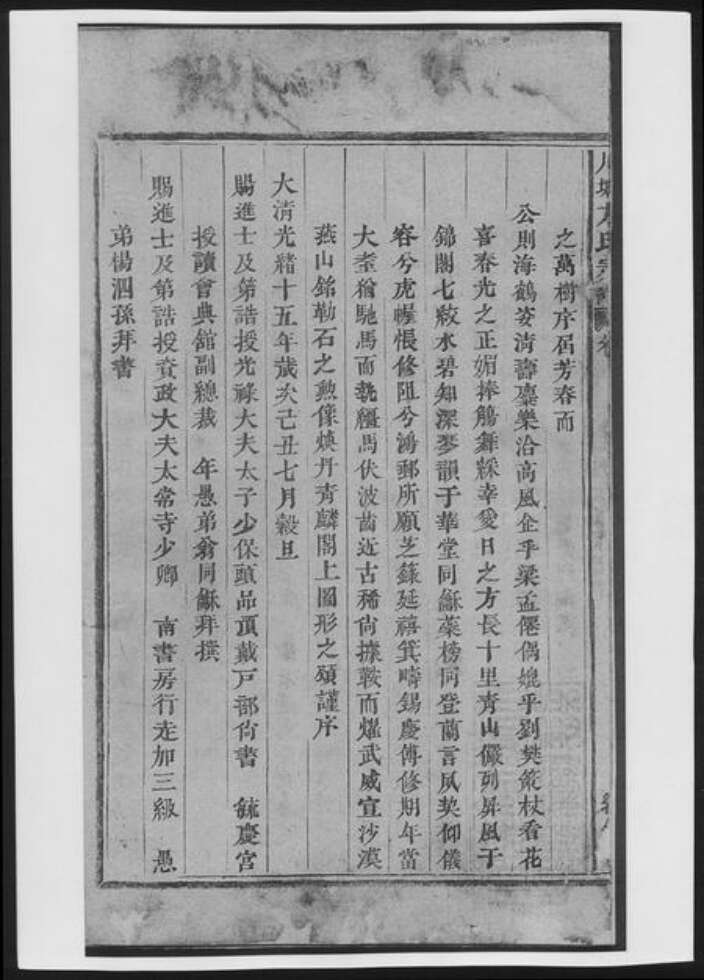 之萬樹序屆芳春而
公則海鶴姿清壽麋樂洽高風企乎梁孟僊偶媲乎劉樊策杖看花
喜春光之正媚捧觴舞綵幸愛日之方長十里青山儼列屏風于
錦閣七絃水碧知深琴韻于華堂同龢蘂榜同登蘭言夙契仰儀
容兮虎幄悵修阻兮鴻郵所願芝籙延禧箕疇錫慶傅修期年當
大耋猶馳馬而執韁馬伏波齒近古稀尙據鞍而燿武威宣沙漠
燕山銘勒石之勲像煥丹青麟閣上圖形之頌謹序
大清光緖十五年歲次己丑七月穀旦
賜進士及第誥授光祿大夫太子少保頭品頂戴戸部尙書 毓慶宮
授讀會典館副總裁 年愚弟翁同龢拜撰
賜進士及第誥授資政大夫太常寺少卿 南書房行走加三級 愚
弟楊泗孫拜書